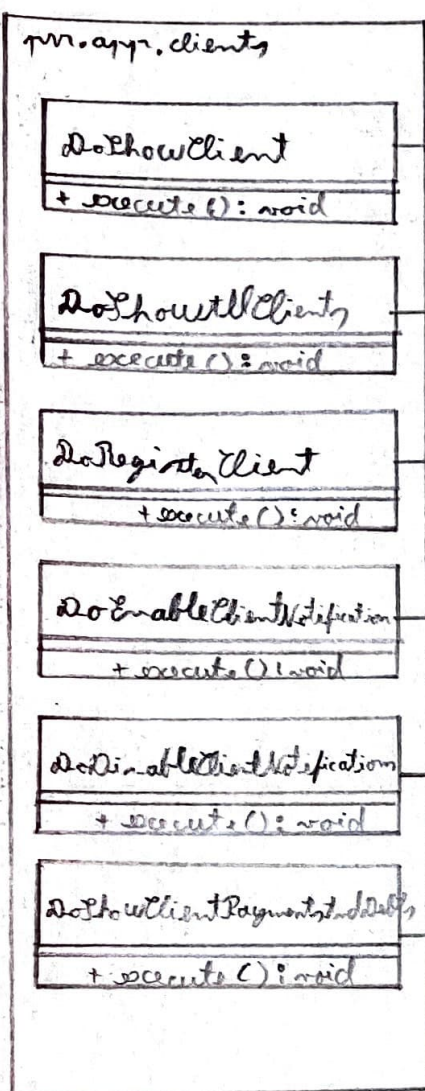 prr.app.clients
DoShowClient
+ execute(): void
DoShowAllClients
+ execute(): void
DoRegisterClient
+ execute(): void
DoEnableClientNotification
+ execute(): void
DoDisableClientNotifications
+ execute(): void
DoShowClientPaymentsAndDebts
+ execute(): void